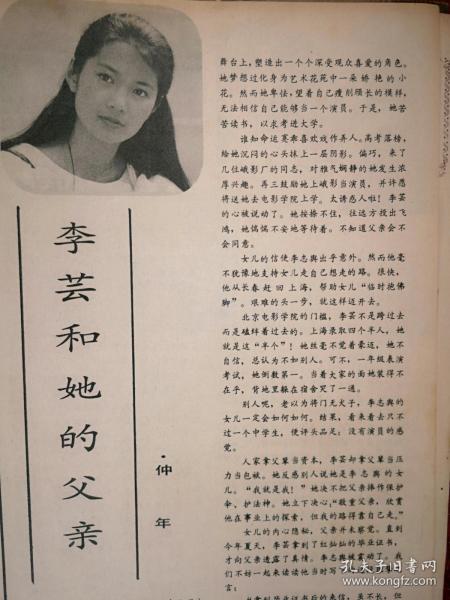 李芸和她的父亲
·仲年
舞台上，塑造出一个个深受观众喜爱的角色。
她梦想过化身为艺术花苑中一朵娇艳的小
花。然而她卑怯，望着自己瘦削颀长的模样，
无法相信自己能够当一个演员。于是，她苦
苦读书，以求考进大学。
谁知命运莫奈喜欢戏作弄人。高考落榜，
给她沉闷的心头抹上一层阴影。偏巧，来了
几位峨影厂的同志，对稚气娴静的她发生浓
厚兴趣。再三鼓励她上峨影当演员，并许愿
将送她去电影学院上学。太诱惑人啦！李芸
的心被说动了。她按捺不住，往远方投出飞
鸿，她惴惴不安地等待着。不知道父亲会不
会同意。
女儿的信使李志舆出乎意外。然而他毫
不犹豫地支持女儿走自己想走的路。很快，
他从长春赶回上海，帮助女儿“临时抱佛
脚”。艰难的头一步，就这样迈开去。
北京电影学院的门槛，李芸不是跨过去
而是磕绊着过去的。上海录取四个半人，她
就是这“半个”！她丝毫不觉着豪迈，她不
自信，总认为不如别人。可不，一年级表演
考试，她倒数第一。当着大家的面她装得不
在乎，背地里躲在宿舍哭了一通。
别人呢，老以为将门无犬子，李志舆的
女儿一定会如何如何。结果，看来看去只不
过一个中学生，便评头品足：没有演员的感
觉。
人家拿父辈当资本，李芸却拿父辈当压
力当包袱。她反感别人说她是李志舆的女
儿。“我就是我！”她决不把父亲捧作保护
伞、护法神。她立下决心：“敬重父亲，欣赏
他在事业上的探索，但我的路得靠自己走。”
女儿的内心隐秘，父亲并未察觉。直到
今年夏天，李芸拿到了红灿灿的毕业证书，
才向父亲透露了真情。李志舆被震动了。我
们不妨一起来读读他当时写
言：
孔夫子旧书网
www.kongfz.com